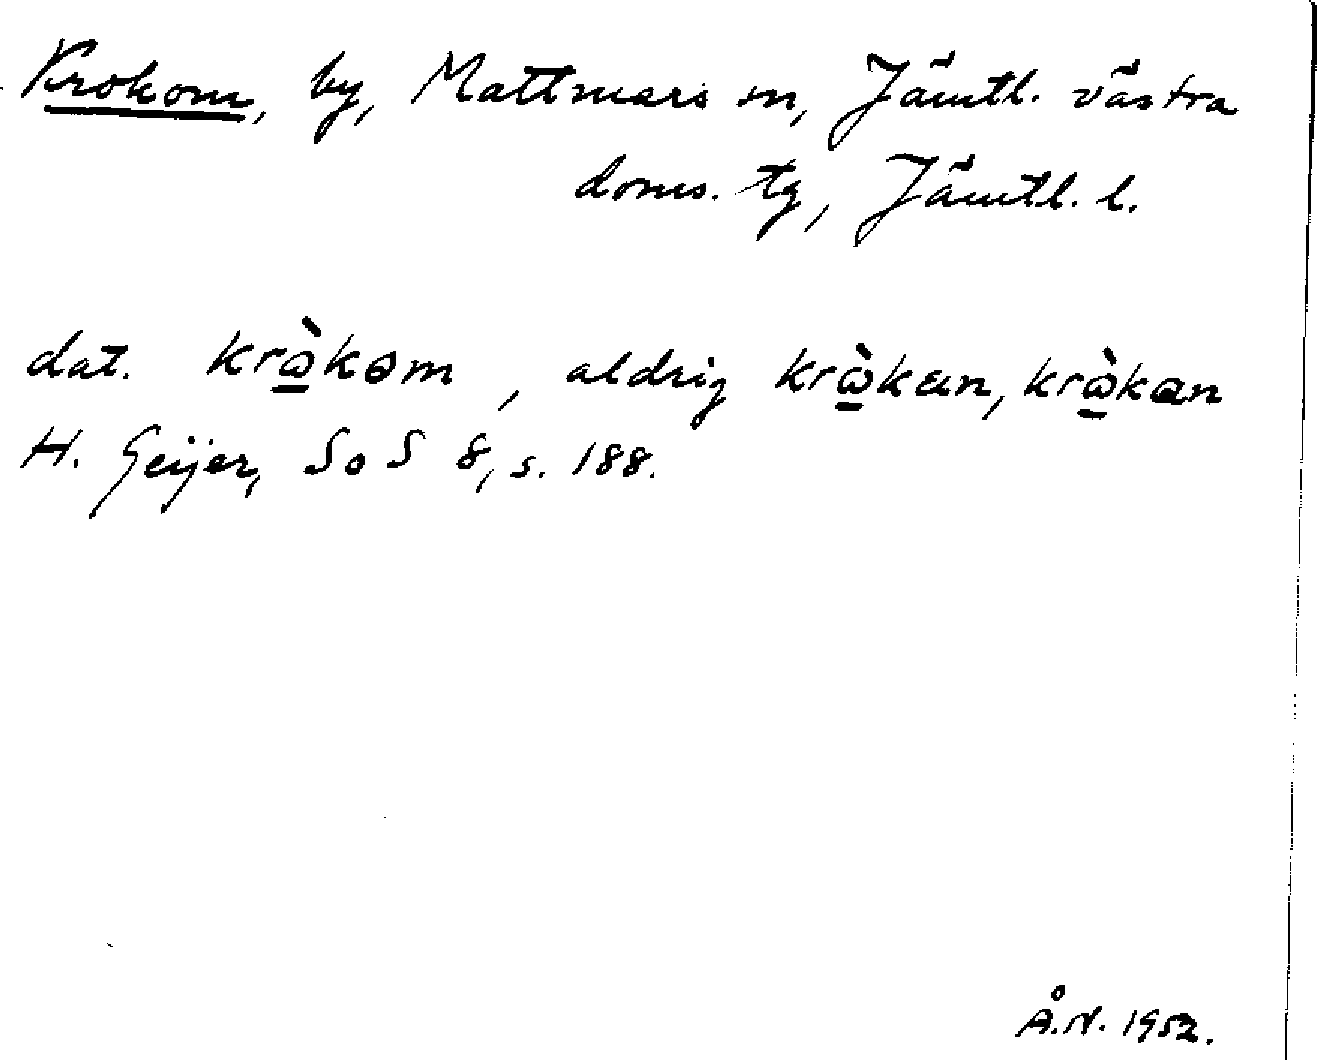 Krokom, by, Mattmars sn, Jämtl. västra
doms. tg, Jämtl. l.
dat. krὼ̲kɵm, aldrig krὼ̲kan, krὼ̲kɑn
H. Geijer, SoS 8, s. 188.
Å.N. 1952.